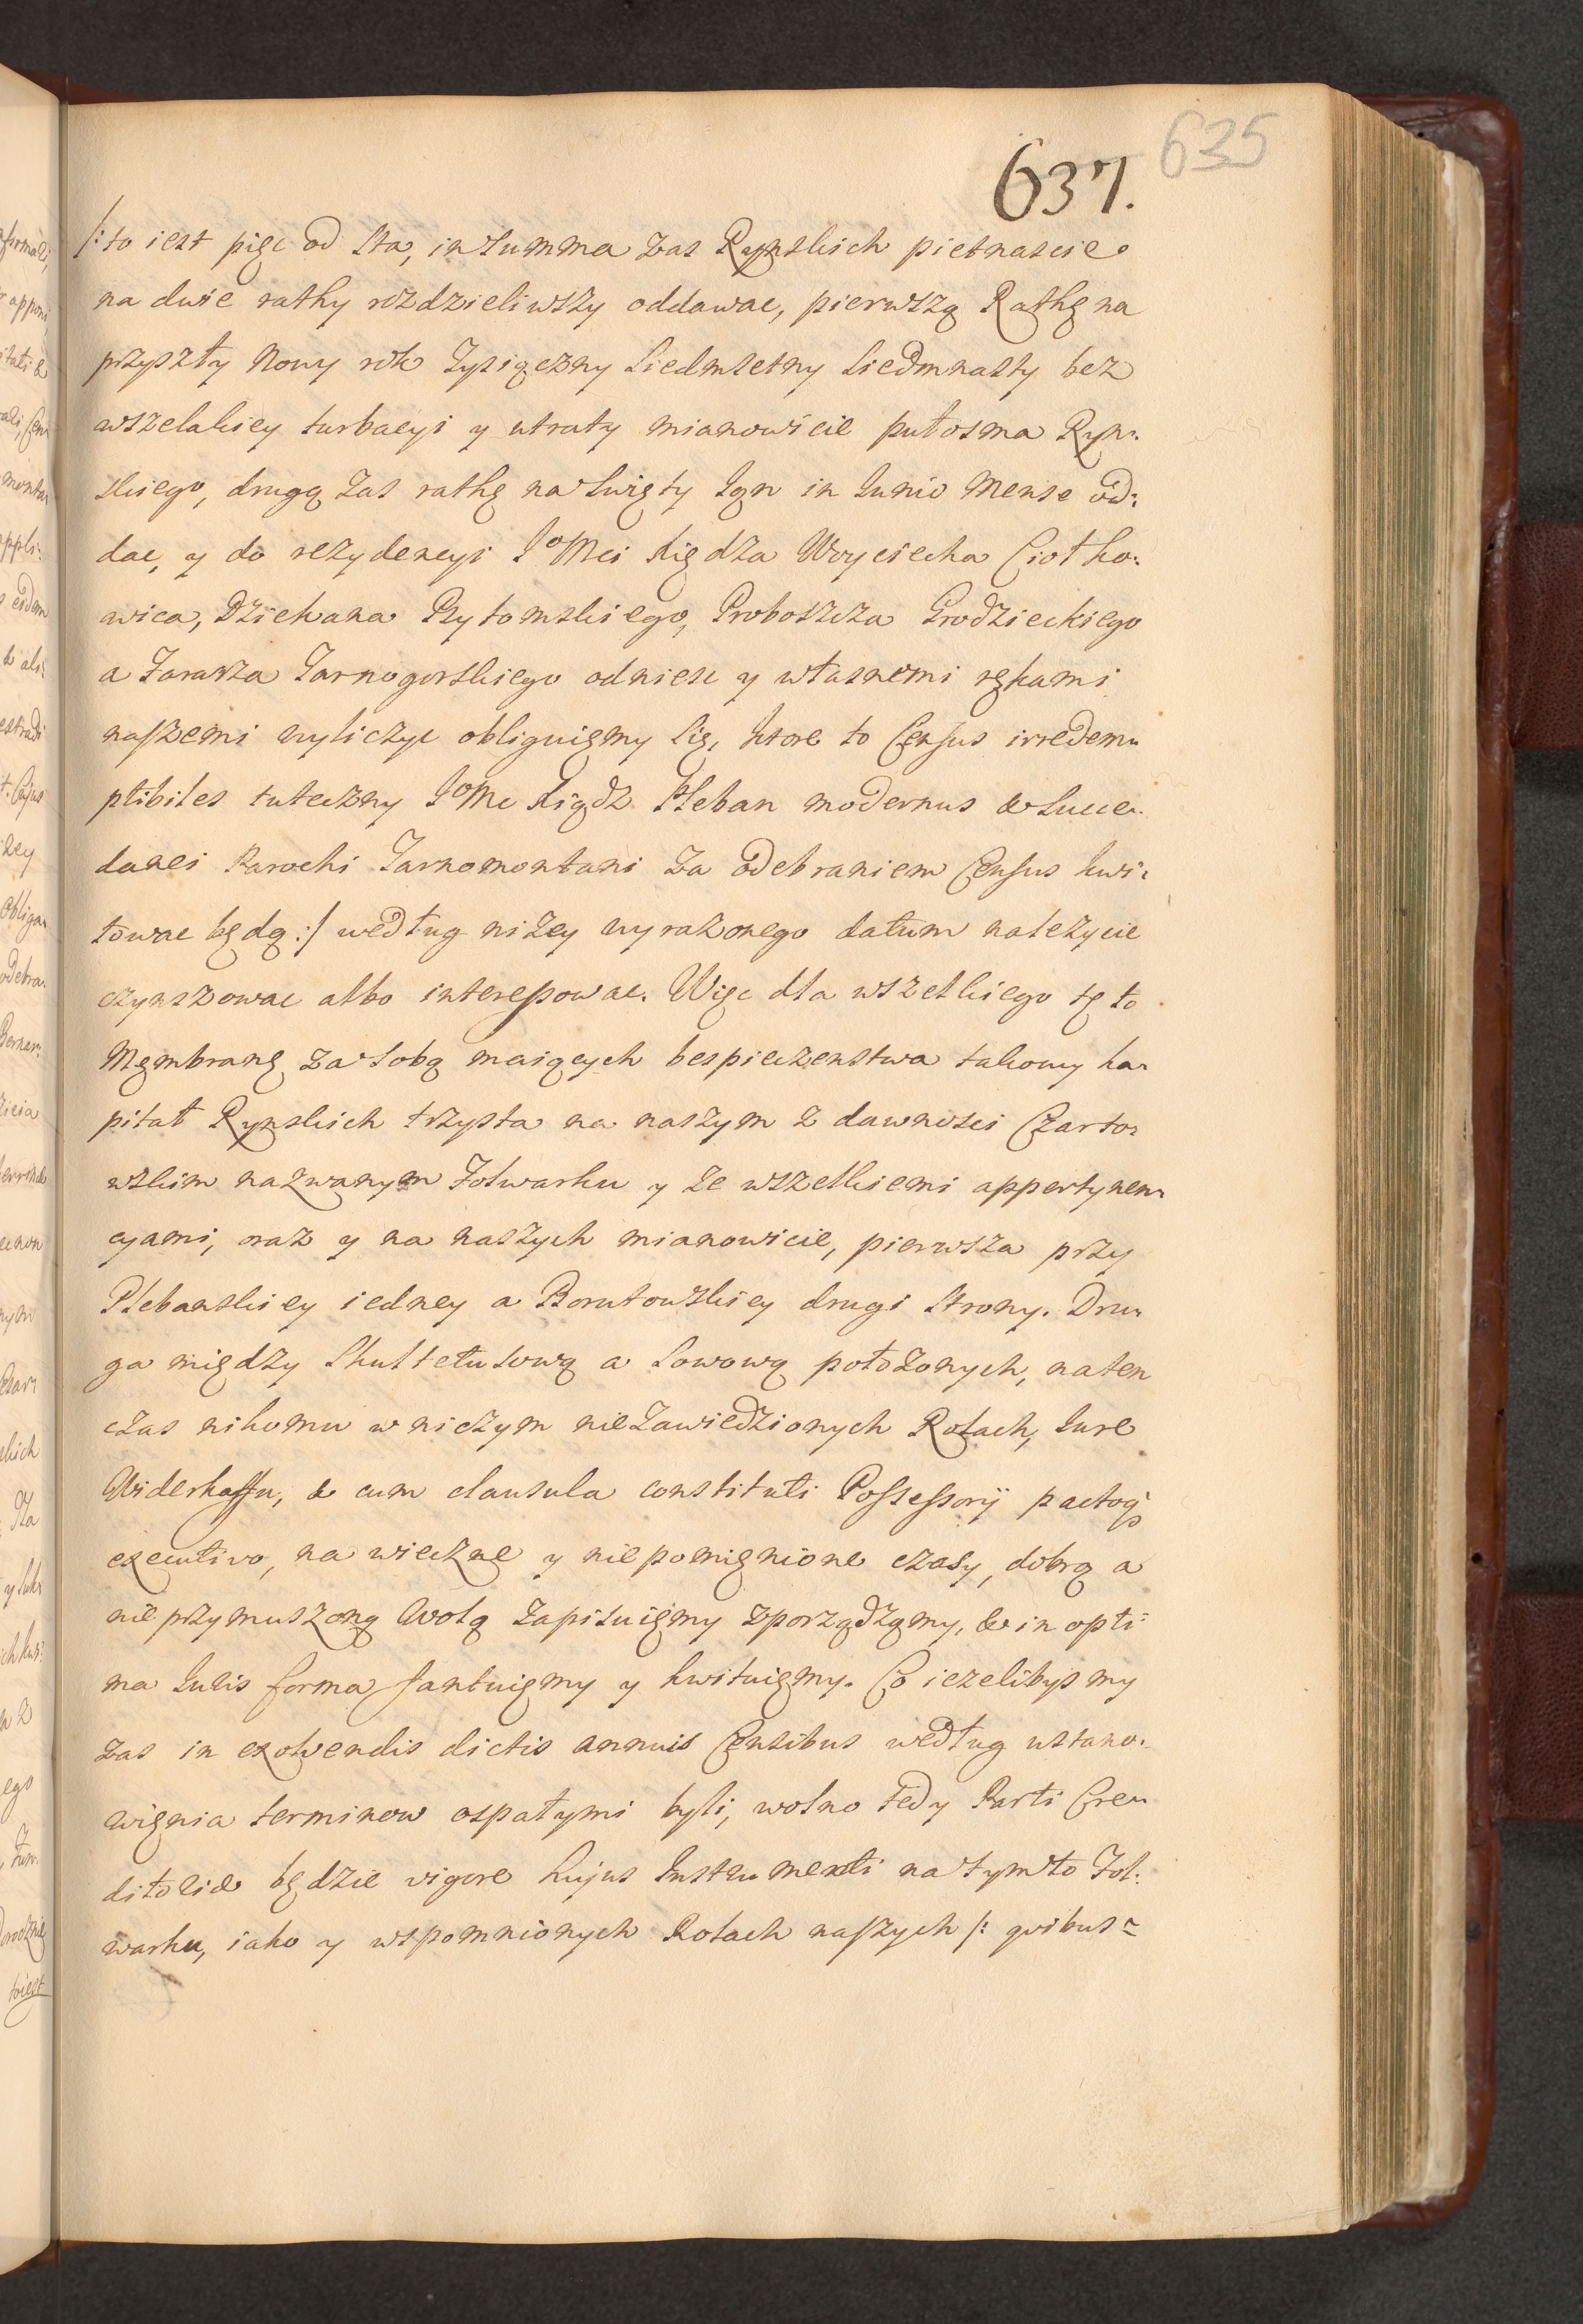 637. 635
/: to iest pięc od Sta, in Summa zas Rynskich pietnascie
na dwie rathy rozdzieliwszy oddawac, pierwszą Rathę na
przyszły Nowy rok Tysiączny Siedmsetny Siedmnasty bez
wszelakiey turbacyi y utraty mianowicie pułosma Ryn:
skiego, drugą Zas rathę na Swięty Jan in Junio Mense od:
dac, y do rezydencyi JoMci Xiędza Woyciecha Ciotko:
wica, Dziekana Bytomskiego, Proboszcza Grodzieckiego
a Fararza Tarnogorskiego odniesc y własnemi rękami
naszemi wyliczyc obliguiemy Się, ktore to Census irredem:
ptibiles tuteczny JoMc Xiądz Pleban modernus & Succe:
danei Parochi Tarnomontani za odebraniem Census kwi:
towac będą :/ według nizey wyrazonego datum nalezycie
czynszowac albo interessowac. Więc dla wszelkiego tę to
Membranę za Sobą maiących bespieczenstwa takowy ka:
pitał Rynskich trzysta na naszym z dawnosci Czarto:
wskim nazwanym Folwarku y ze wszelkiemi appertynen:
cyami, oraz y na naszych mianowicie, pierwsza przy
Plebanskiey iedney a Borutowskiey drugi Strony. Dru:
ga między Skultetusową a Sowową położonych, naten
czas nikomu w niczym nieZawiedzionych Rolach, Jure
Widerkaffu, & cum clausula constituti Possessorij pactoq;
executivo, na wieczne y niepomięnione czasy, dobrą a
nieprzymuszoną Wolą Zapisuięmy zporządzamy, & in opti:
ma Juris forma fantuięmy y kwituięmy. Co iezelibysmy
zas in exolvendis dictis annuis Censibus według ustano:
więnia terminow ospałymi byli, wolno tedy Parti Cre:
ditoriæ będzie vigore hujus Instrumenti na tymto Fol:
warku, iako y wspomnionych Rolach naszych /: quibus: